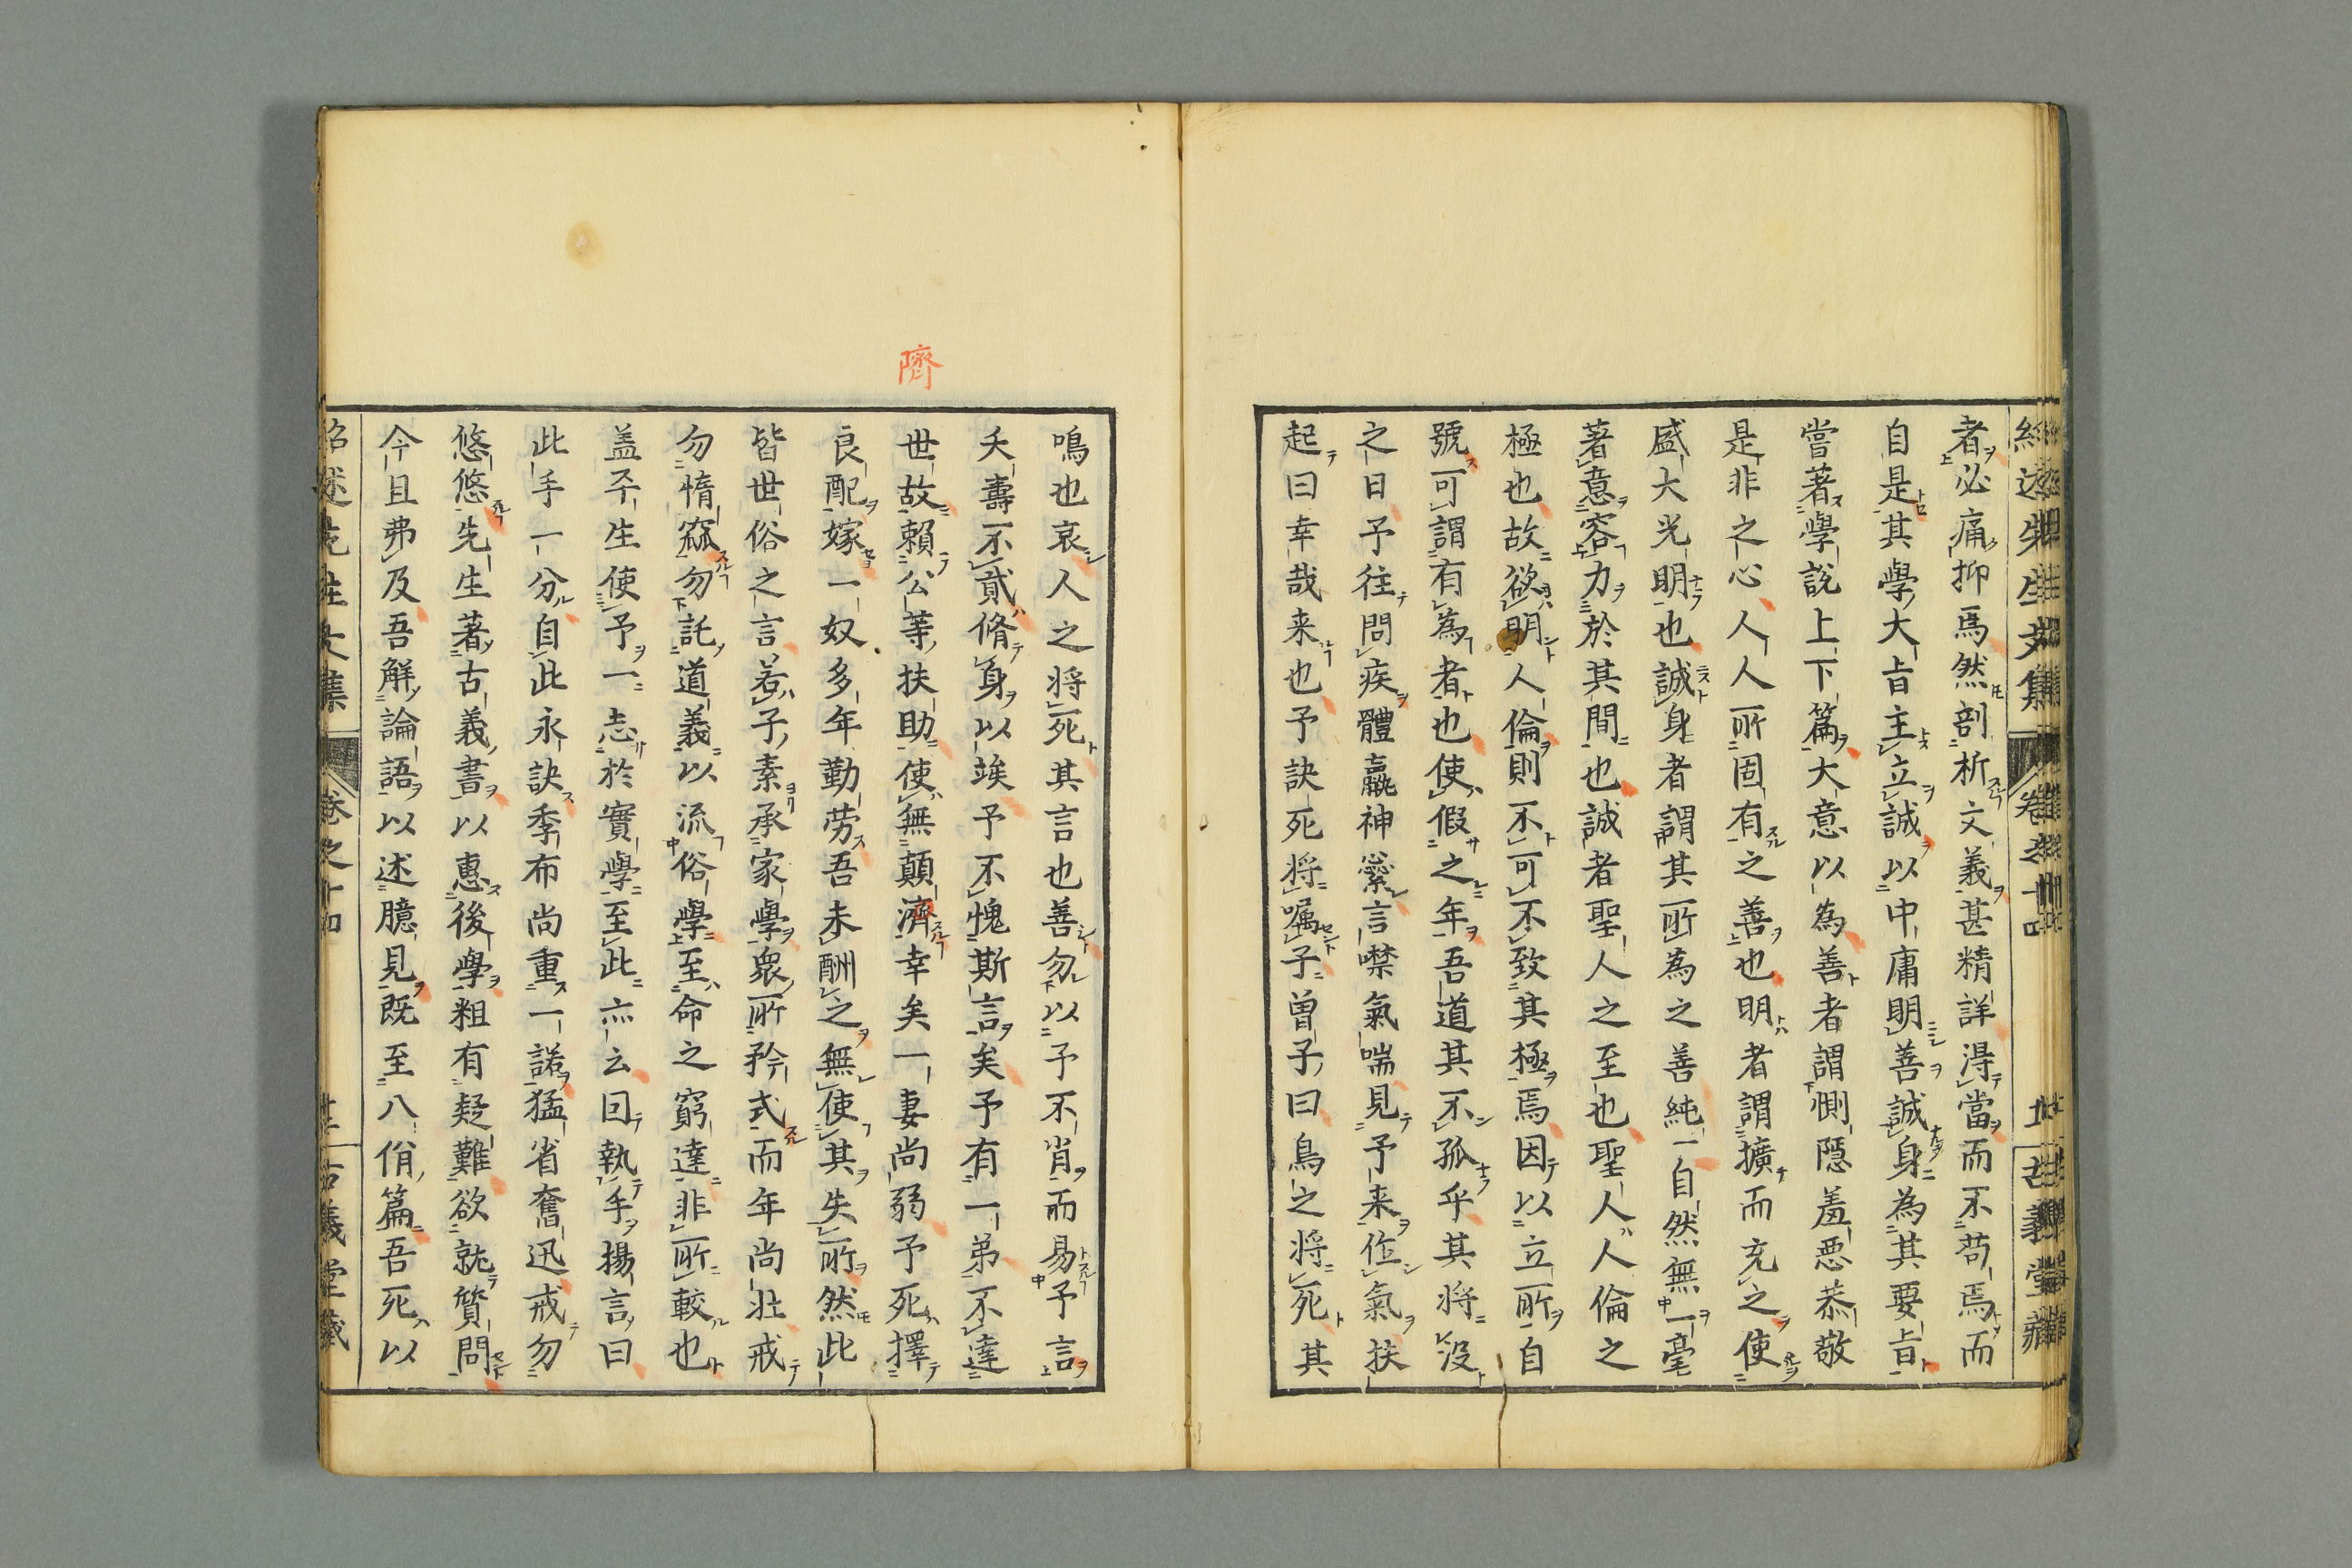 者必痛抑焉然剖析文義甚精詳淂當而不苟焉而
自是其學大旨主立誠以中庸明善誠身為其要旨
嘗著學說上下篇大意以為善者謂惻隠羞悪恭敬
是非之心人人所固有之善也明者謂擴而充之使
盛大光明也誠身者謂其所為之善純一自然無一毫
著意容力於其間也誠者聖人之至也聖人人倫之
極也故欲明人倫則不可不致其極焉因以立所自
號可謂有為者也使假之年吾道其不孤乎其将没
之日予往問疾體羸神綮言噤氣喘見予来作氣扶
起曰幸哉来也予訣死将嘱子曽子曰鳥之将死其
隮
鳴也哀人之将死其言也善勿以予不肖而易予言
夭壽不貮脩身以竢予不愧斯言矣予有一弟不達
世故賴公等扶助使無顛濟幸矣一妻尚弱予死擇
良配嫁一奴多年勤労吾未酬之無使其失所然此
皆世俗之言若子素承家學衆所矜式而年尚壮戒
勿惰窳勿託道義以流俗學至命之窮達非所較也
盖平生使予一志於實學至此亦云回執手揚言曰
此手一分自此永訣季布尚重一諾猛省奮迅戒勿
悠悠先生著古義書以惠後學粗有疑難欲就質問
今且弗及吾解論語以述臆見既至八佾篇吾死以
卷之十四
古義堂蔵